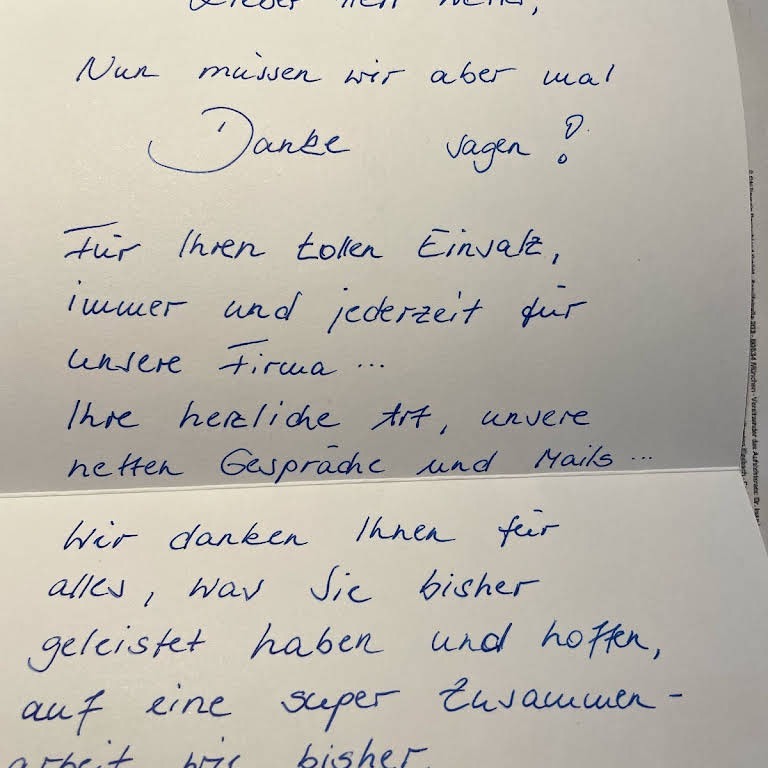 Lieber Herr
Nun müssen wir aber mal
Danke sagen!
Für Ihren tollen Einsatz,
immer und jederzeit für
unsere Firma ...
Ihre herzliche Art, unsere
netten Gespräche und Mails ...
Wir danken Ihnen für
alles, was Sie bisher
geleistet haben und hoffen,
auf eine super Zusammen-
arbeit wie bisher.
München - Vorsitzender des Aufsichtsrates: Dr.